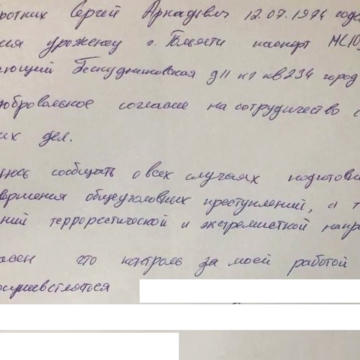 ротких Сергей Аркадьевич 12.07.1974 года
уроженец г. Тольятти паспорт МС10
ющий Бескудниковская д 11 к 1 кв 234 город
добровольное согласие на сотрудничество с
их дел.
сообщать о всех случаях подготовки
вершения общеуголовных преступлений, а т
ний террористической и экстремистской напр
что контроль за моей работой
осуществляться